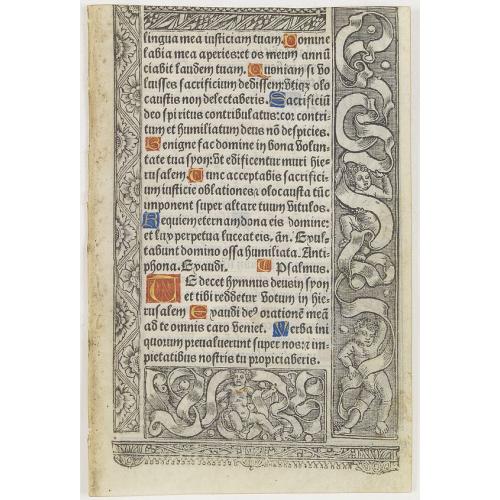 lingua mea iusticiam tuam. Domine
labia mea aperies: et os meum annū
ciabit laudem tuam. Quoniam si vo
luisses sacrificium dedissem: vtiqȝ olo
caustis non delectaberis. Sacrificiū
deo spiritus contribulatus: cor contri
tum et humiliatum deus nō despicies.
Benigne fac domine in bona volun
tate tua syon: vt edificentur muri hie-
rusalem. Tunc acceptabis sacrifici-
um iusticie oblationes ⁊ olocausta tūc
imponent super altare tuum vitulos.
Requiem eternam dona eis domine:
et lux perpetua luceat eis. añ. Exul-
tabunt domino ossa humiliata. Anti-
phona. Exaudi. Psalmus.
Te decet hymnus deus in syon
et tibi reddetur votum in hie-
rusalem Exaudi deꝰ orationē meā
ad te omnis caro veniet. Verba ini
quorum preualuerunt super nos: ⁊ im-
pietatibus nostris tu propiciaberis.